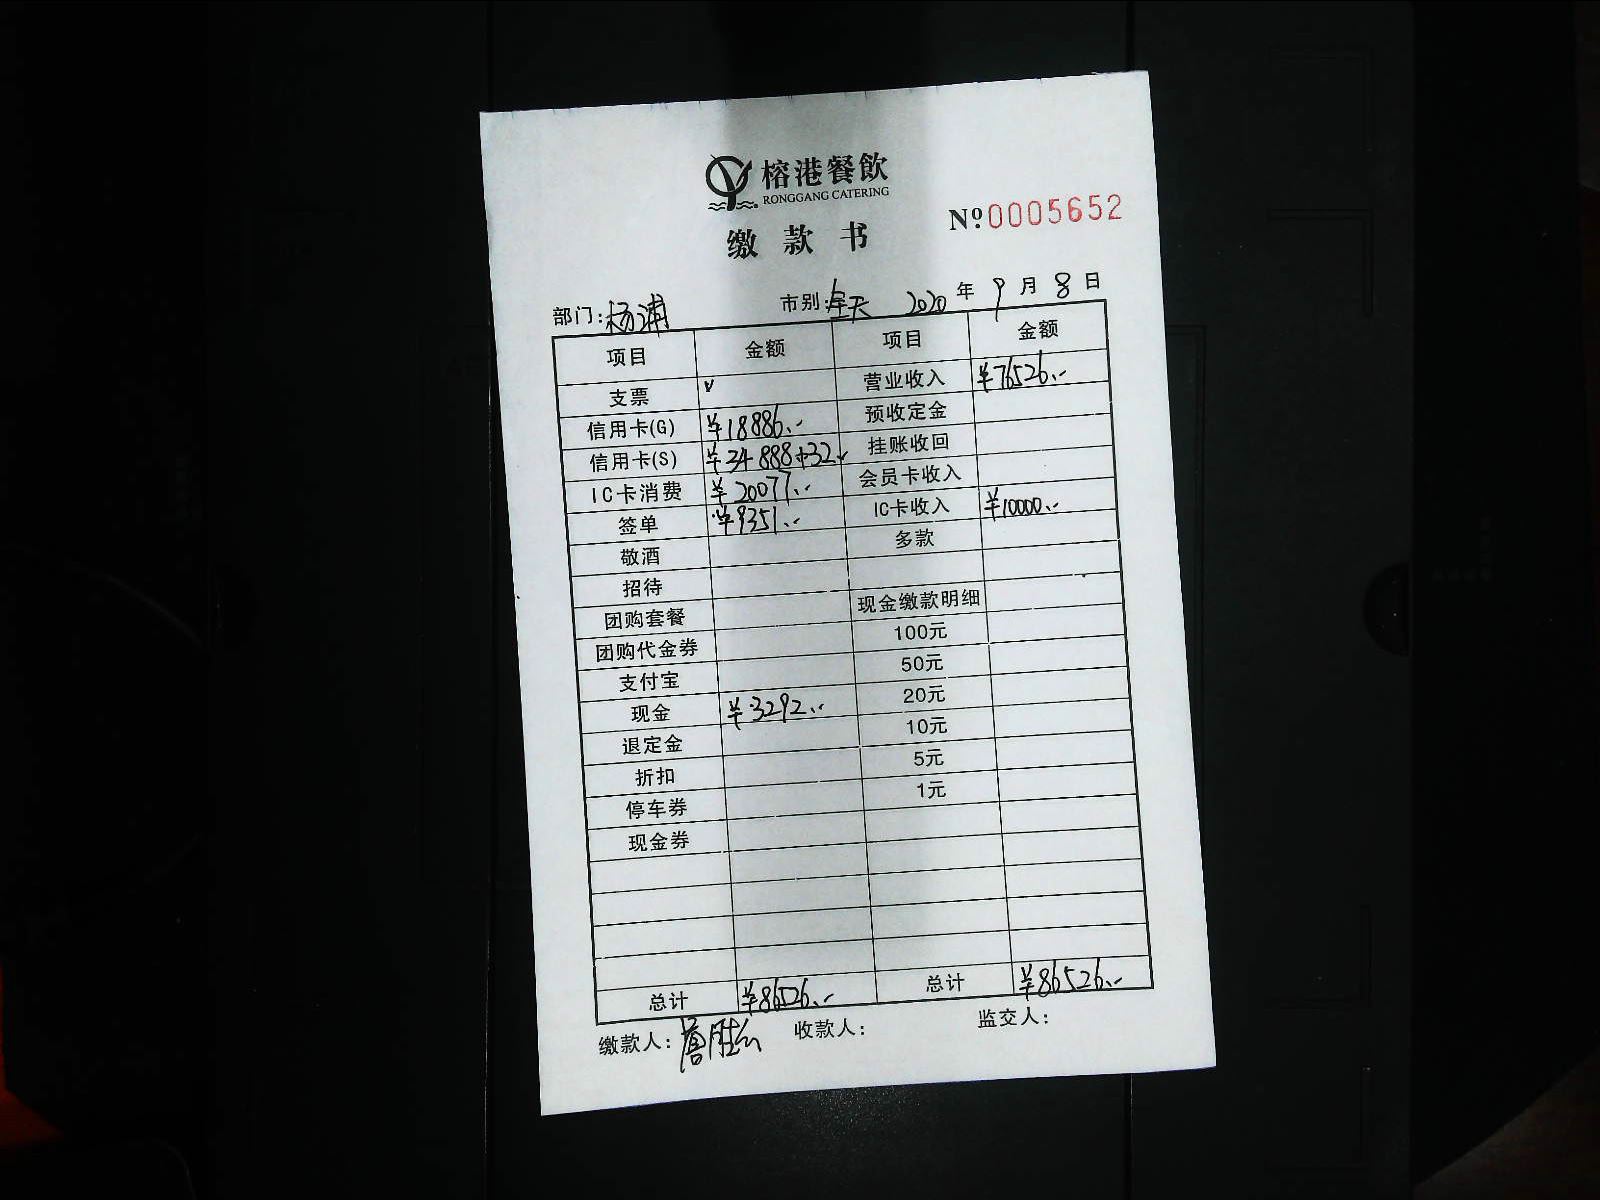 榕港餐飲
RONGGANG CATERING
№0005652
缴款书
部门:杨浦 市别:全天 2020年9月8日
项目 金额 项目 金额
支票 营业收入 ¥76526.-
信用卡(G) ¥18886.- 预收定金
信用卡(S) ¥34888+32 挂账收回
IC卡消费 ¥20077.- 会员卡收入
签单 ¥9351.- IC卡收入 ¥10000.-
敬酒 多款
招待
团购套餐 现金缴款明细
团购代金券 100元
支付宝 50元
现金 ¥3292.- 20元
退定金 10元
折扣 5元
停车券 1元
现金券
总计 ¥86526.- 总计 ¥86526.-
缴款人: 收款人: 监交人: